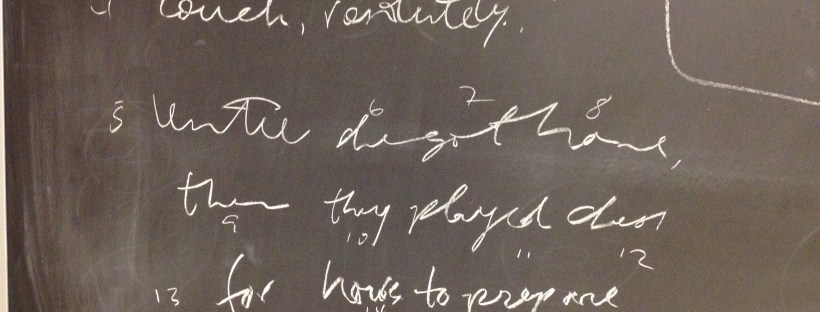 4 couch, resolutely.
5 Until 6 he 7 got 8 home,
then 9 they 10 played 11 chess 12
13 for hours 14 to prepare